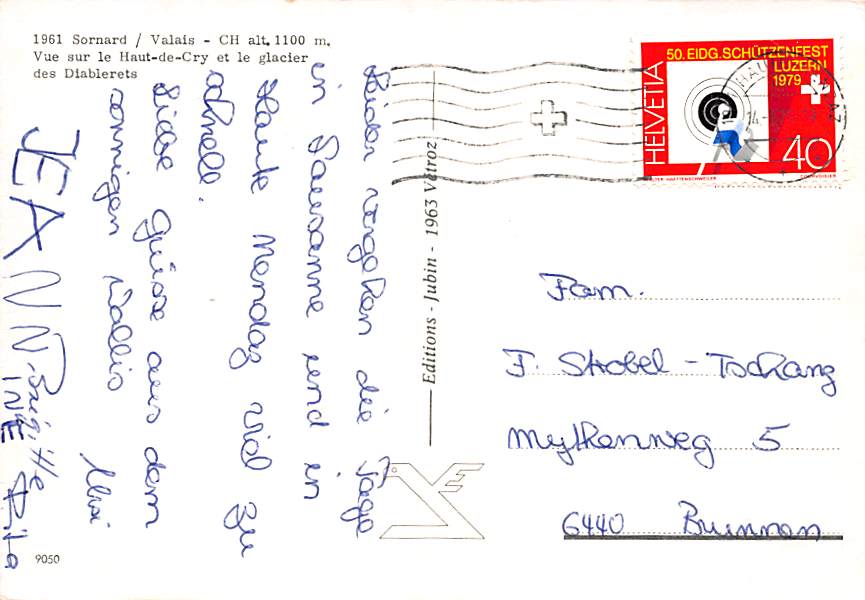 1961 Sornard / Valais - CH alt. 1100 m.
Vue sur le Haut-de-Cry et le glacier
des Diablerets
Leider vergehen die Tage
in Lausanne und in
Haute Nendaz viel zu
schnell.
Liebe Grüsse aus dem
sonnigen Wallis
JEANNINE
Brigitte
Rita
Editions - Jubin - 1963 Vétroz
50. EIDG. SCHÜTZENFEST
LUZERN
1979
HELVETIA
40
COURVOISIER
14
Fam.
F. Strobel - Tschanz
Mythenweg 5
6440 Brunnen
9050